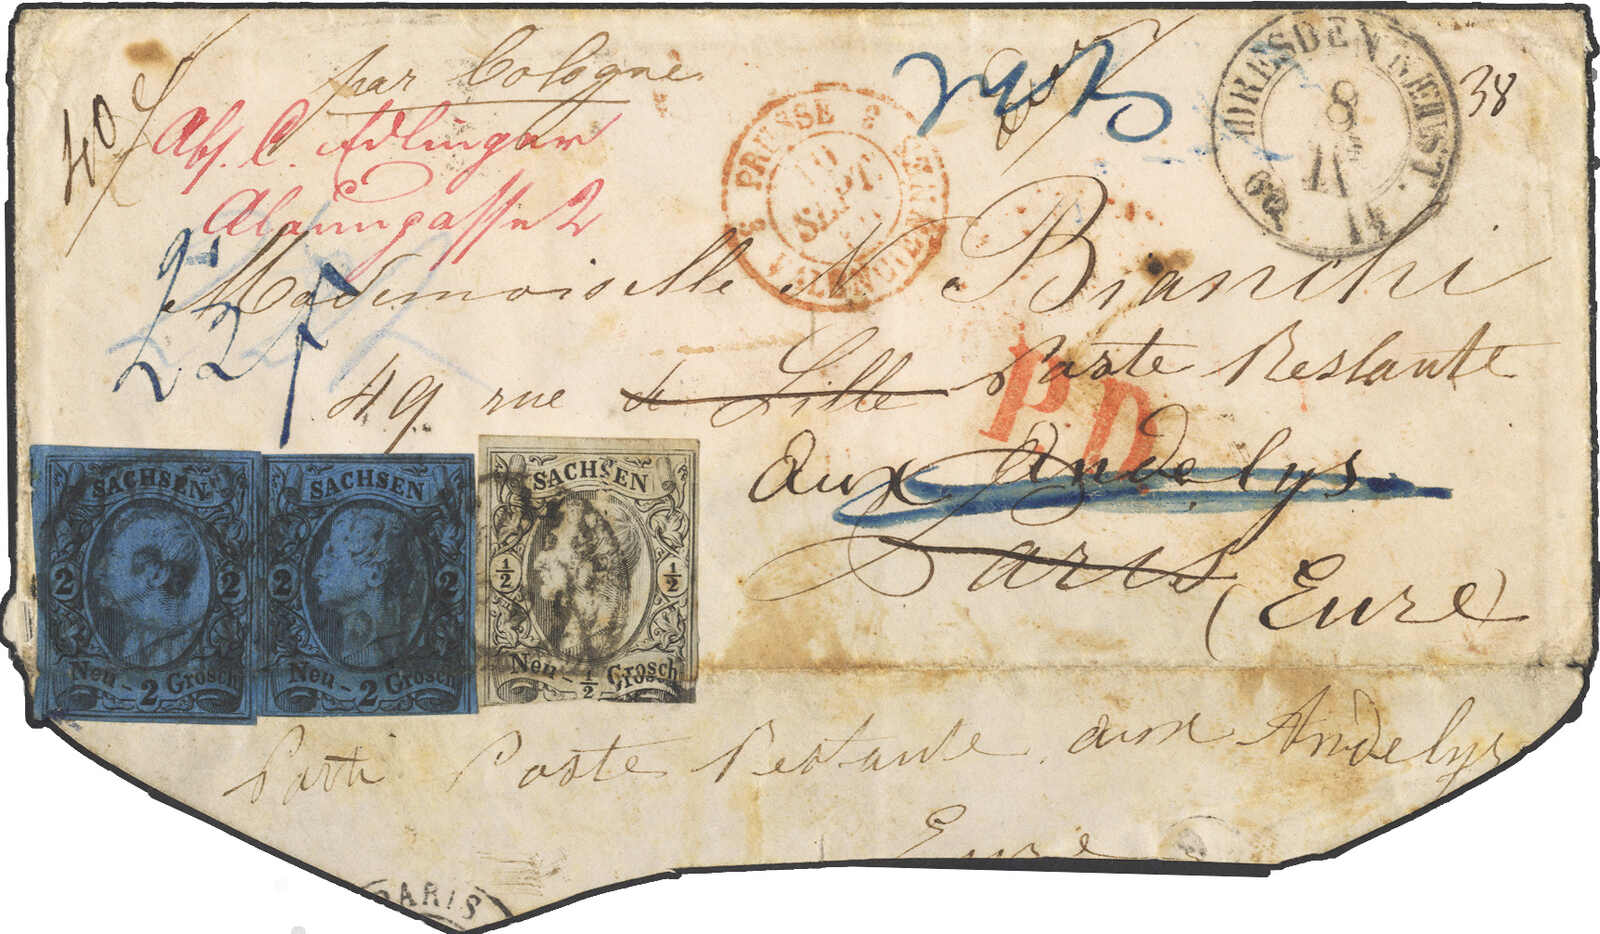 par Cologne
40
38
Abs. C. Edlinger
Alaungasse 2
PRUSSE 3 VALENCIENNES 3
10
SEPT.
DRESDEN NEUST.
8
60
14
Mademoiselle N Bianchi
49 rue de Lille Poste Restante
P.D.
aux Andelys
Paris (Eure)
SACHSEN
2 2
Neu - 2 Grosch
SACHSEN
2 2
Neu - 2 Grosch
SACHSEN
½ ½
Neu - ½ Grosch
Parti Poste Restante aux Andelys
Eure
PARIS